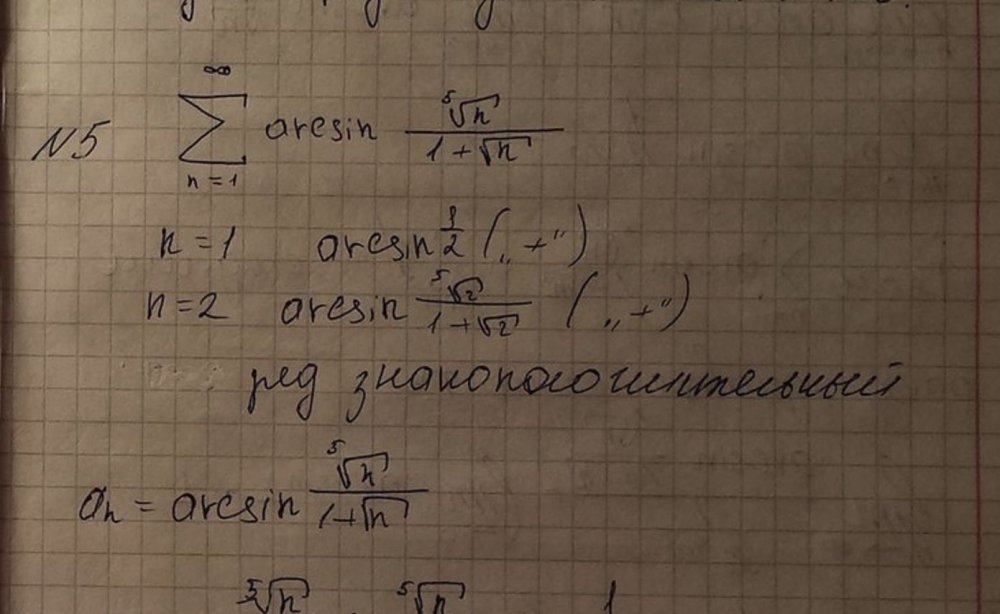 N5 ∑_{n=1}^{∞} arcsin ⁵√n / (1+√n)
n=1 arcsin 1/2 („+")
n=2 arcsin ⁵√2 / (1+√2) („+")
ряд знакоположительный
aₙ = arcsin ⁵√n / (1+√n)
⁵√n ⁵√n 1